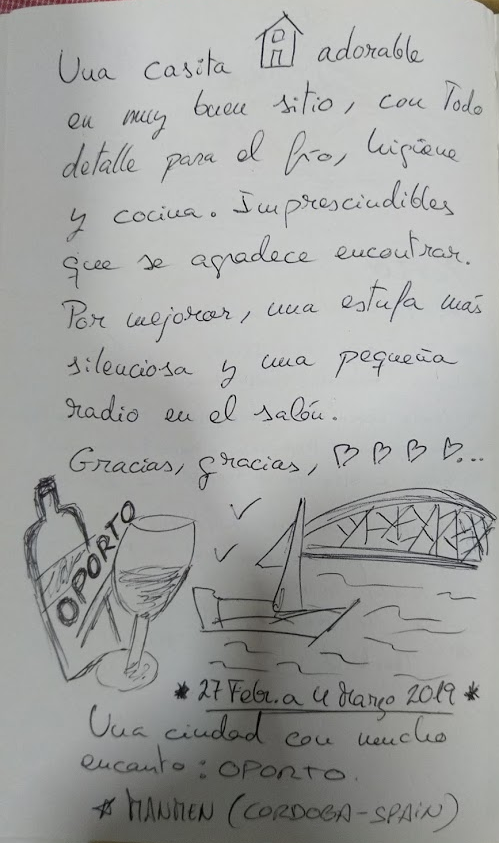 Una casita adorable
en muy buen sitio, con Todo
detalle para el frío, higiene
y cocina. Imprescindibles
que se agradece encontrar.
Por mejorar, una estufa más
silenciosa y una pequeña
radio en el salón.
Gracias, gracias,
OPORTO
* 27 Febr. a 4 Março 2019 *
Una ciudad con mucho
encanto: OPORTO.
(CORDOBA-SPAIN)